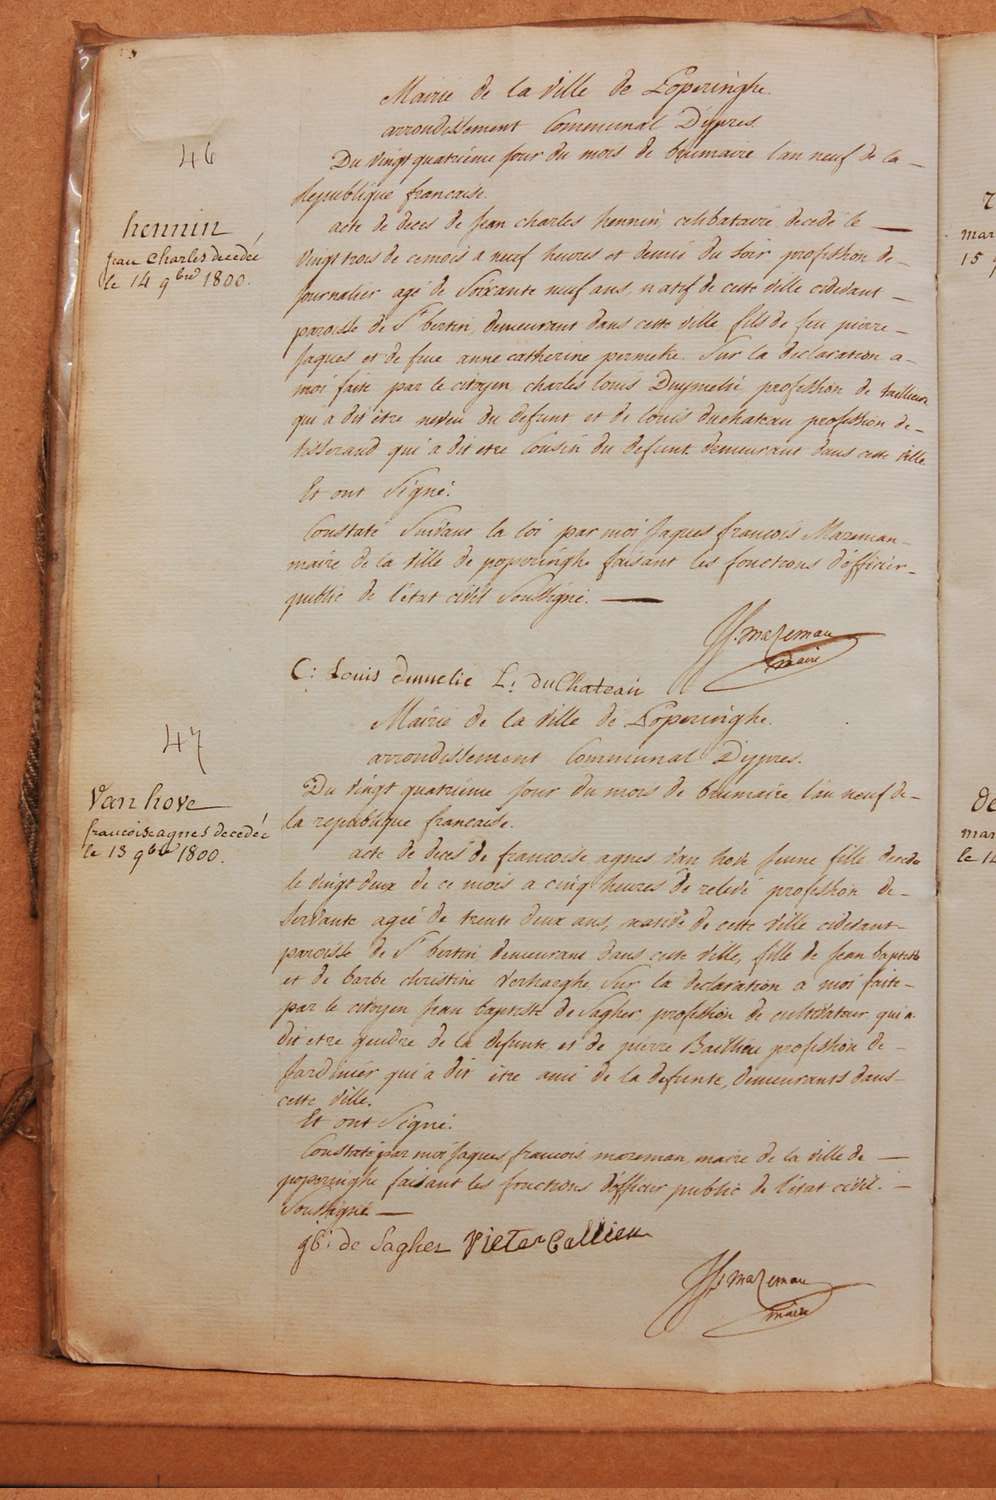 46
hennin
jean Charles decedé
le 14 9bre 1800.
Mairie de la ville de Poperinghe.
arrondissement Communal D'ypres.
Du vingt quatrieme jour du mois de brumaire l'an neuf de la —
Republique francaise.
acte de deces de jean charles hennin, celibataire decedé le —
vingt trois de ce mois a neuf heures et demie du soir profession de —
journalier agé de soixante neuf ans, natif de cette ville cidevant —
paroisse de St bertin, demeurant dans cette ville fils de feu pierre —
jaques et de feue anne catherine permeke. Sur la declaration a —
moi faite par le citoyen charles louis Duymelie profession de tailleur
qui a dit être neveu du defunt et de louis duchateau profession de —
tisserand qui a dit etre Cousin du defunt demeurant dans cette ville.
Et ont Signé.
Constaté Suivant la loi par moi jaques francois Mazeman —
maire de la ville de poperinghe faisant les fonctions d'officier —
public de l'état civil Soussigné. —
JJ. mazeman
maire
C: Louis dumelie L: Du Chateau
47
Van hove
francoise agnes decedée
le 13 9bre 1800.
Mairie de la ville de Poperinghe.
arrondissement Communal D'ypres.
Du vingt quatrieme jour du mois de brumaire l'an neuf de —
la republique francaise.
acte de deces de francoise agnes van hove jeune fille decedée
le vingt deux de ce mois a cinq heures de relevé profession de —
servante ageé de trente deux ans, native de cette ville cidevant —
paroisse de St bertin demeurant dans cette ville, fille de jean baptiste
et de barbe christine verhaeghe, Sur la declaration a moi faite —
par le citoyen jean baptiste de Sagher profession de cultivateur qui a
dit etre gendre de la defunte et de pierre Baillieu profession de —
jardinier qui a dit être ami de la defunte, demeurants dans —
cette ville.
Et ont Signé.
Constaté par moi jaques francois mazeman maire de la ville de —
poperinghe faisant les fonctions d'officier public de l'état civil. —
Soussigné —
gb: de Sagher Pieter Callieu
JJ. mazeman
maire
mar
15
de
mar
le 14